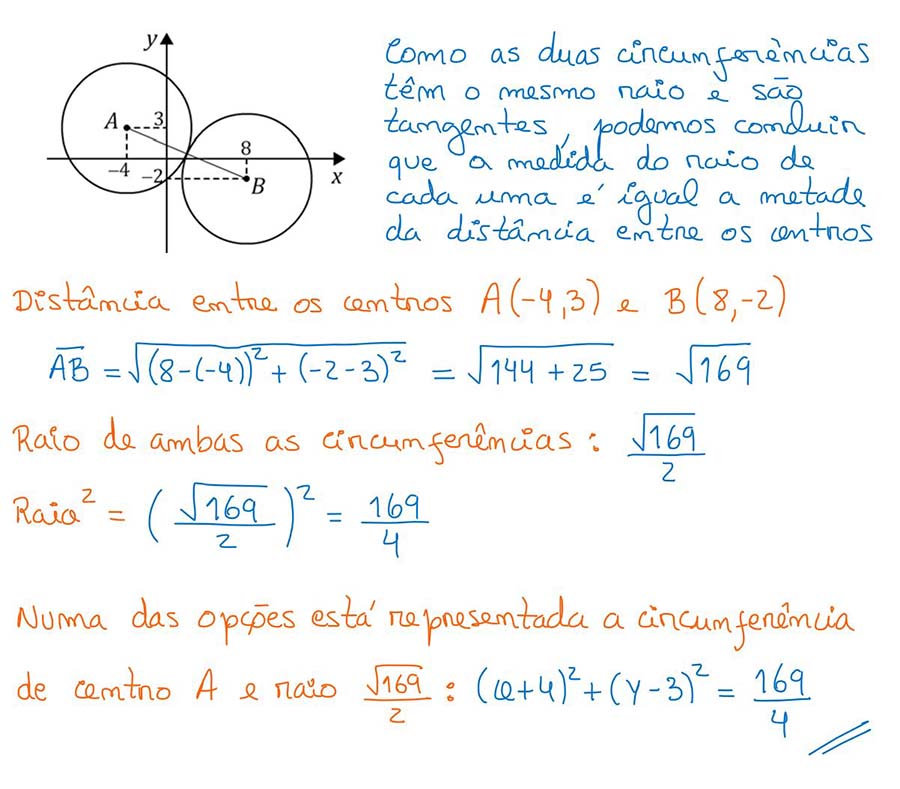 y
A
3
8
-4
-2
B
x
Como as duas circunferências
têm o mesmo raio e são
tangentes, podemos concluir
que a medida do raio de
cada uma é igual a metade
da distância entre os centros
Distância entre os centros A(-4,3) e B(8,-2)
AB̅ = √((8-(-4))² + (-2-3)²) = √(144+25) = √169
Raio de ambas as circunferências: √169/2
Raio² = (√169/2)² = 169/4
Numa das opções está representada a circunferência
de centro A e raio √169/2 : (x+4)² + (y-3)² = 169/4